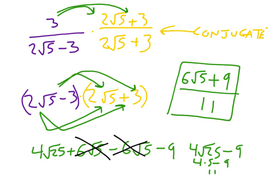 3/(2√5-3) · (2√5+3)/(2√5+3) ← CONJUGATE
(2√5-3)·(2√5+3)
(6√5+9)/11
4√25+6√5-6√5-9 4√25-9
4·5-9
11